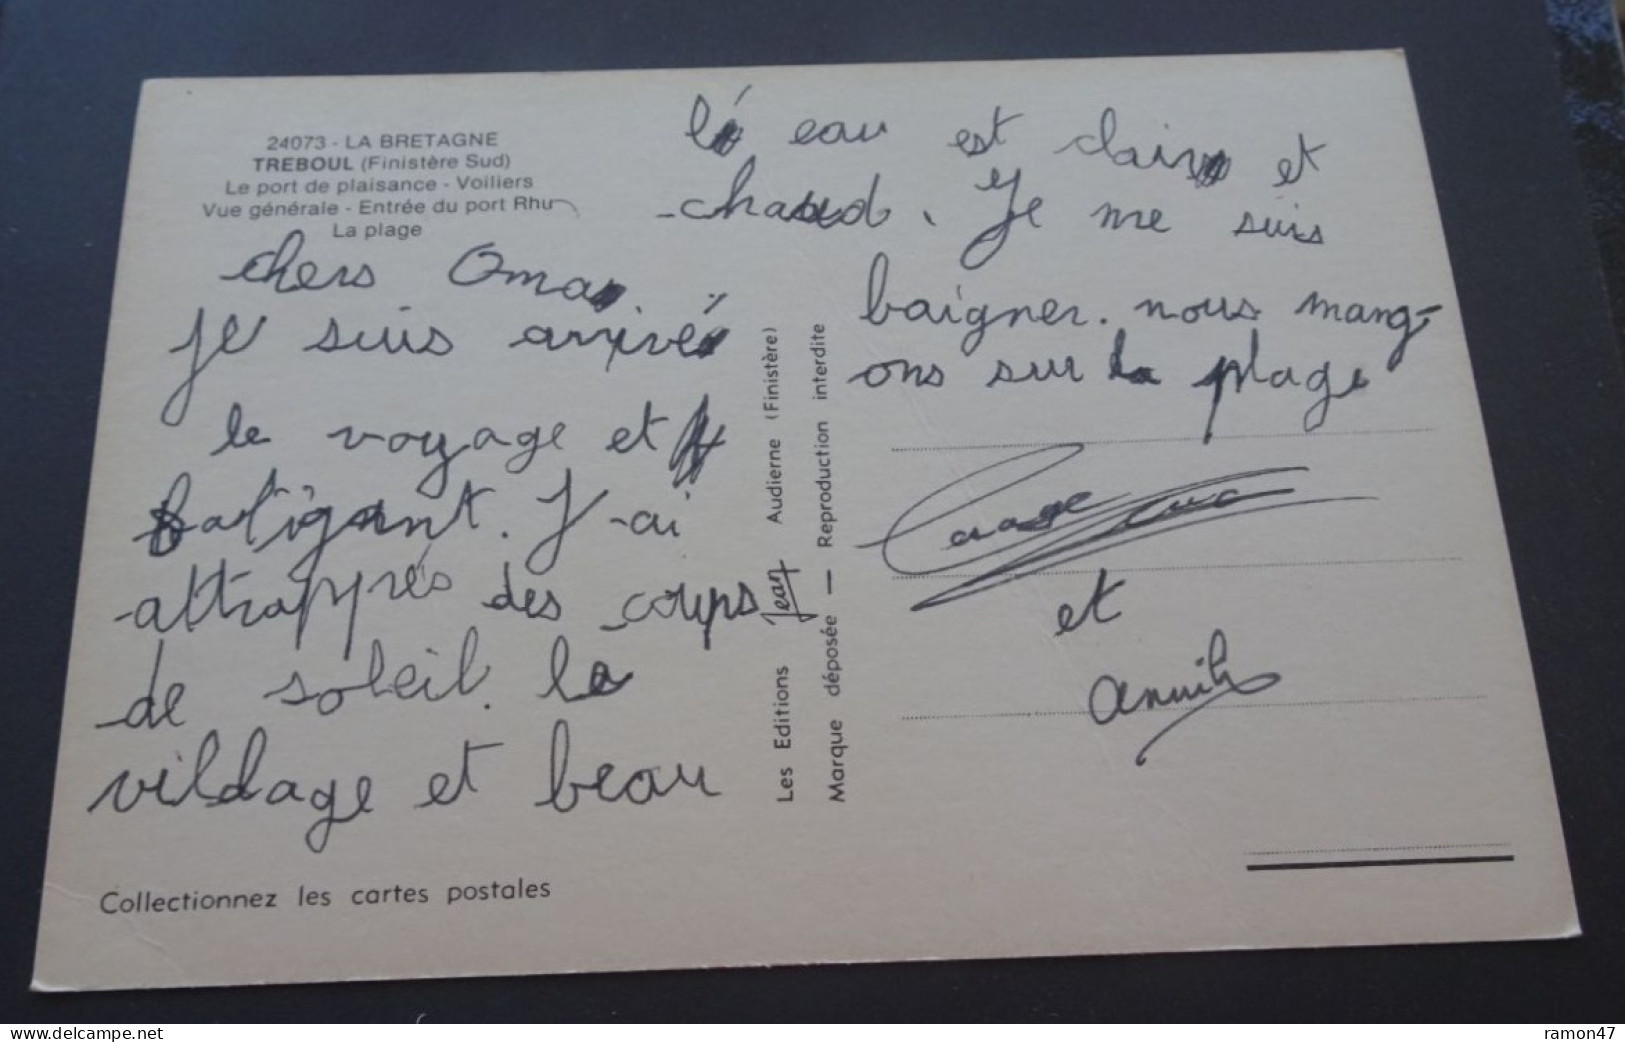 24073 - LA BRETAGNE
TREBOUL (Finistère Sud)
Le port de plaisance - Voiliers
Vue générale - Entrée du port Rhu
La plage
chers Oma
Je suis arrivé
le voyage et
fatigant. J-ai
attrapprés des coups
de soleil. le
vildage et beau
Collectionnez les cartes postales
Les Editions Jean Audierne (Finistère)
Marque déposée — Reproduction interdite
l' eau est clair et
chaud. Je me suis
baigner. nous mang-
ons sur la plage
et
delcampe.net
ramon47